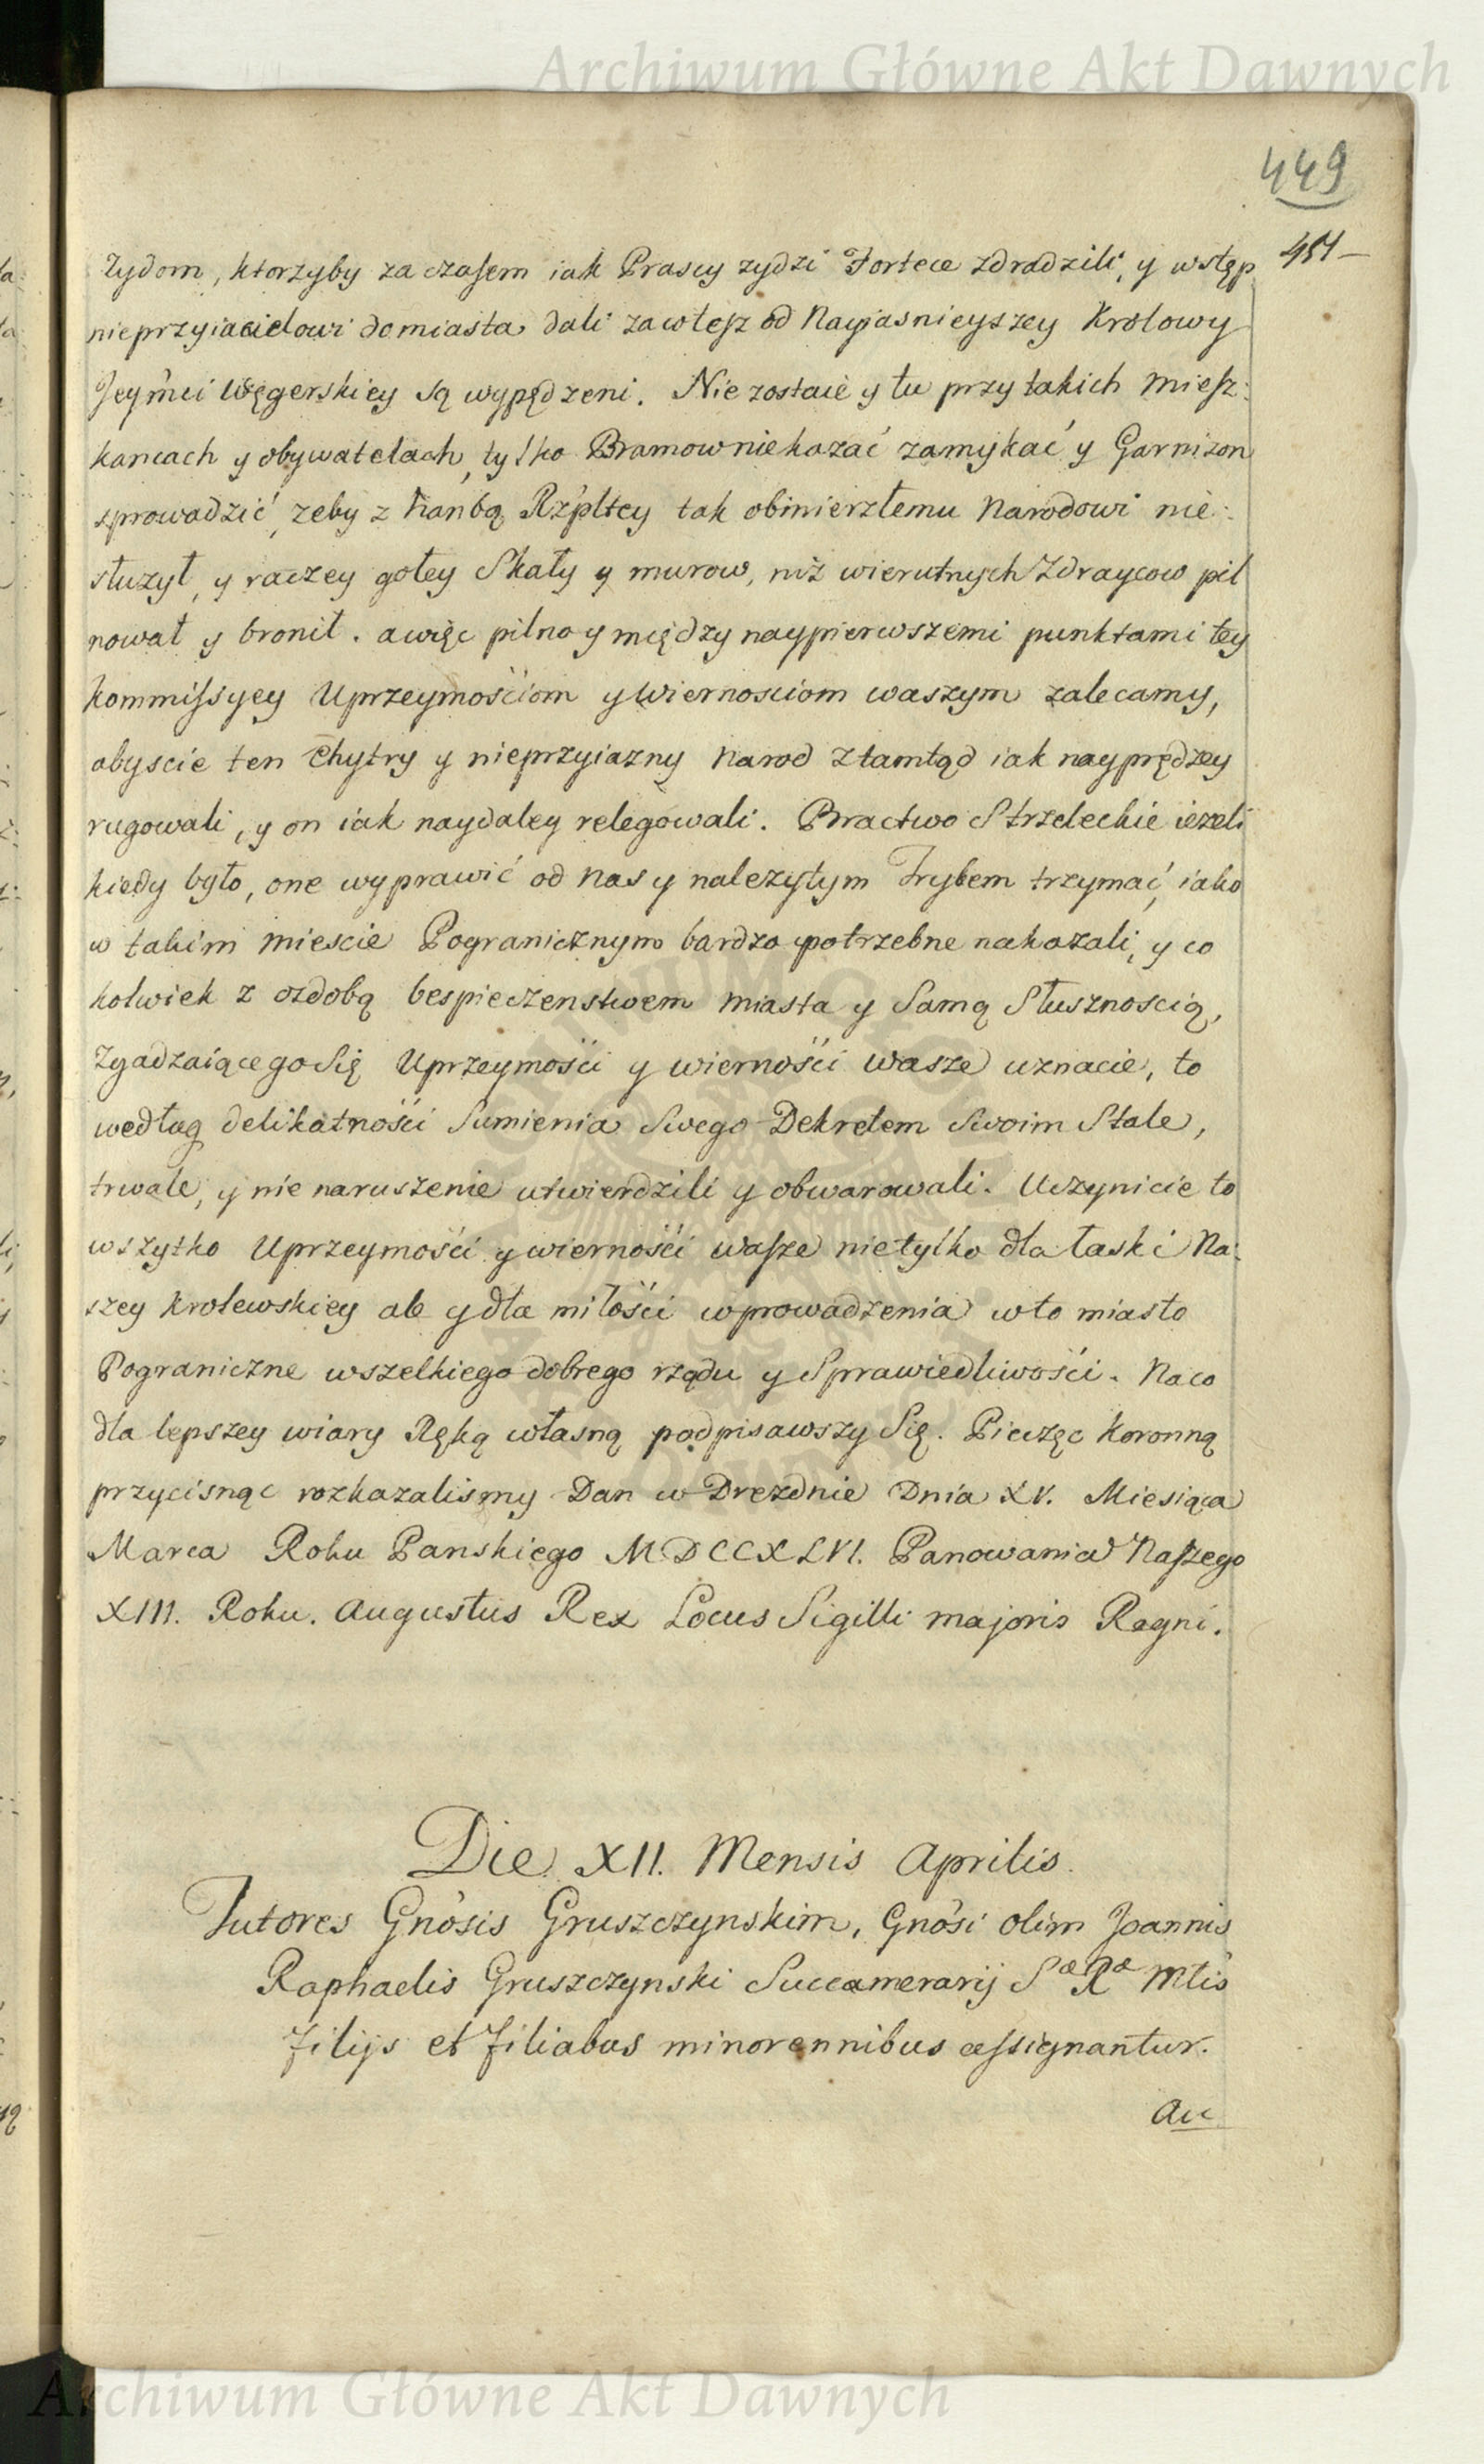 Archiwum Główne Akt Dawnych
449
451
Zydom, ktorzyby za czasem iak Prascy zydzi Fortece zdradzili, y wstęp
nieprzyiacielowi do miasta dali za co tesz od Nayiasnieyszey Krolowy
Jeymci Węgerskiey są wypędzeni. Nie zostaie y tu przy takich miesz:
kancach y obywatelach, tylko Bramow nie kazać zamykać y Garnizon
sprowadzić, zeby z hanbą Rzpltey tak obmierzłemu Narodowi nie:
słuzył, y raczey gołey Skały y murow, niż wierutnych Zdraycow pil
nował y bronił. a więc pilno y między naypierwszemi punktami tey
Kommissyey Uprzeymościom y Wiernosciom waszym zalecamy,
abyscie ten Chytry y nieprzyiazny Narod ztamtąd iak nayprędzey
rugowali, y on iak naydaley relegowali. Bractwo Strzeleckie iezeli
kiedy było, one wyprawić od Nas y nalezytym Trybem trzymać, iako
w takim miescie Pogranicznym bardzo potrzebne nakazali, y co
kolwiek z ozdobą bespieczenstwem miasta y Samą Słusznoscią,
Zgadzaiącego Się Uprzeymości y wierności Wasze uznacie, to
według delikatności Sumienia Swego Dekretem Swoim Stale,
trwale, y nie naruszenie utwierdzili y obwarowali. Uczynicie to
wszytko Uprzeymości y wierności wasze nie tylko dla łaski Na:
szey Krolewskiey ale y dla miłości wprowadzenia w to miasto
Pograniczne wszelkiego dobrego rządu y Sprawiedliwości. Na co
dla lepszey wiary Ręką własną podpisawszy Się. Pieczęc Koronną
przycisnąc rozkazalismy Dan w Dreznie Dnia XV. Miesiąca
Marca Roku Panskiego MDCCXLVI. Panowania Naszego
XIII. Roku. Augustus Rex Locus Sigilli majoris Regni.
Die XII. Mensis Aprilis.
Tutores Gnosis Gruszczynskim, Gnosi olim Joannis
Raphaelis Gruszczynski Succamerarij Sae Rae Mtis
filijs et filiabus minorennibus assignantur.
Au
Archiwum Główne Akt Dawnych